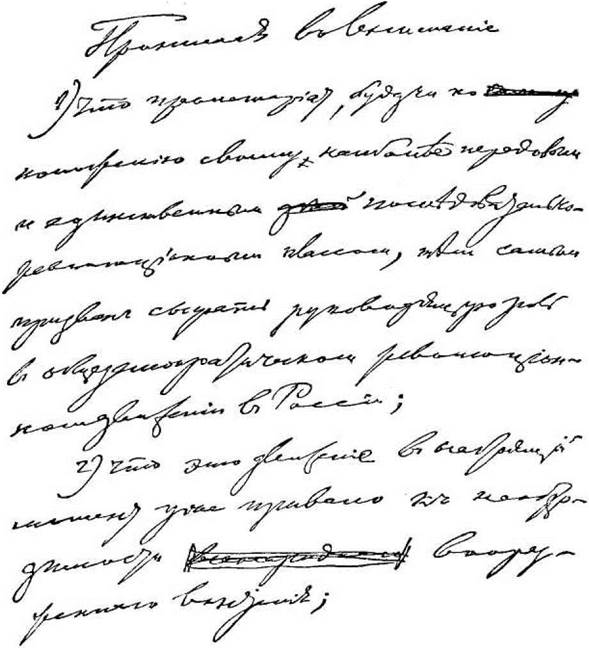 Принимая во вниманіе
1) что пролетаріат, будучи по
положенію своему наиболѣе передовым
и единственным послѣдовательно-
революціонным классом, тѣм самым
призван сыграть руководящую роль
в общедемократическом революціон-
ном движеніи в Россіи;
2) что это движеніе в настоящій
момент уже привело къ необхо-
димости воору-
женнаго возстанія;